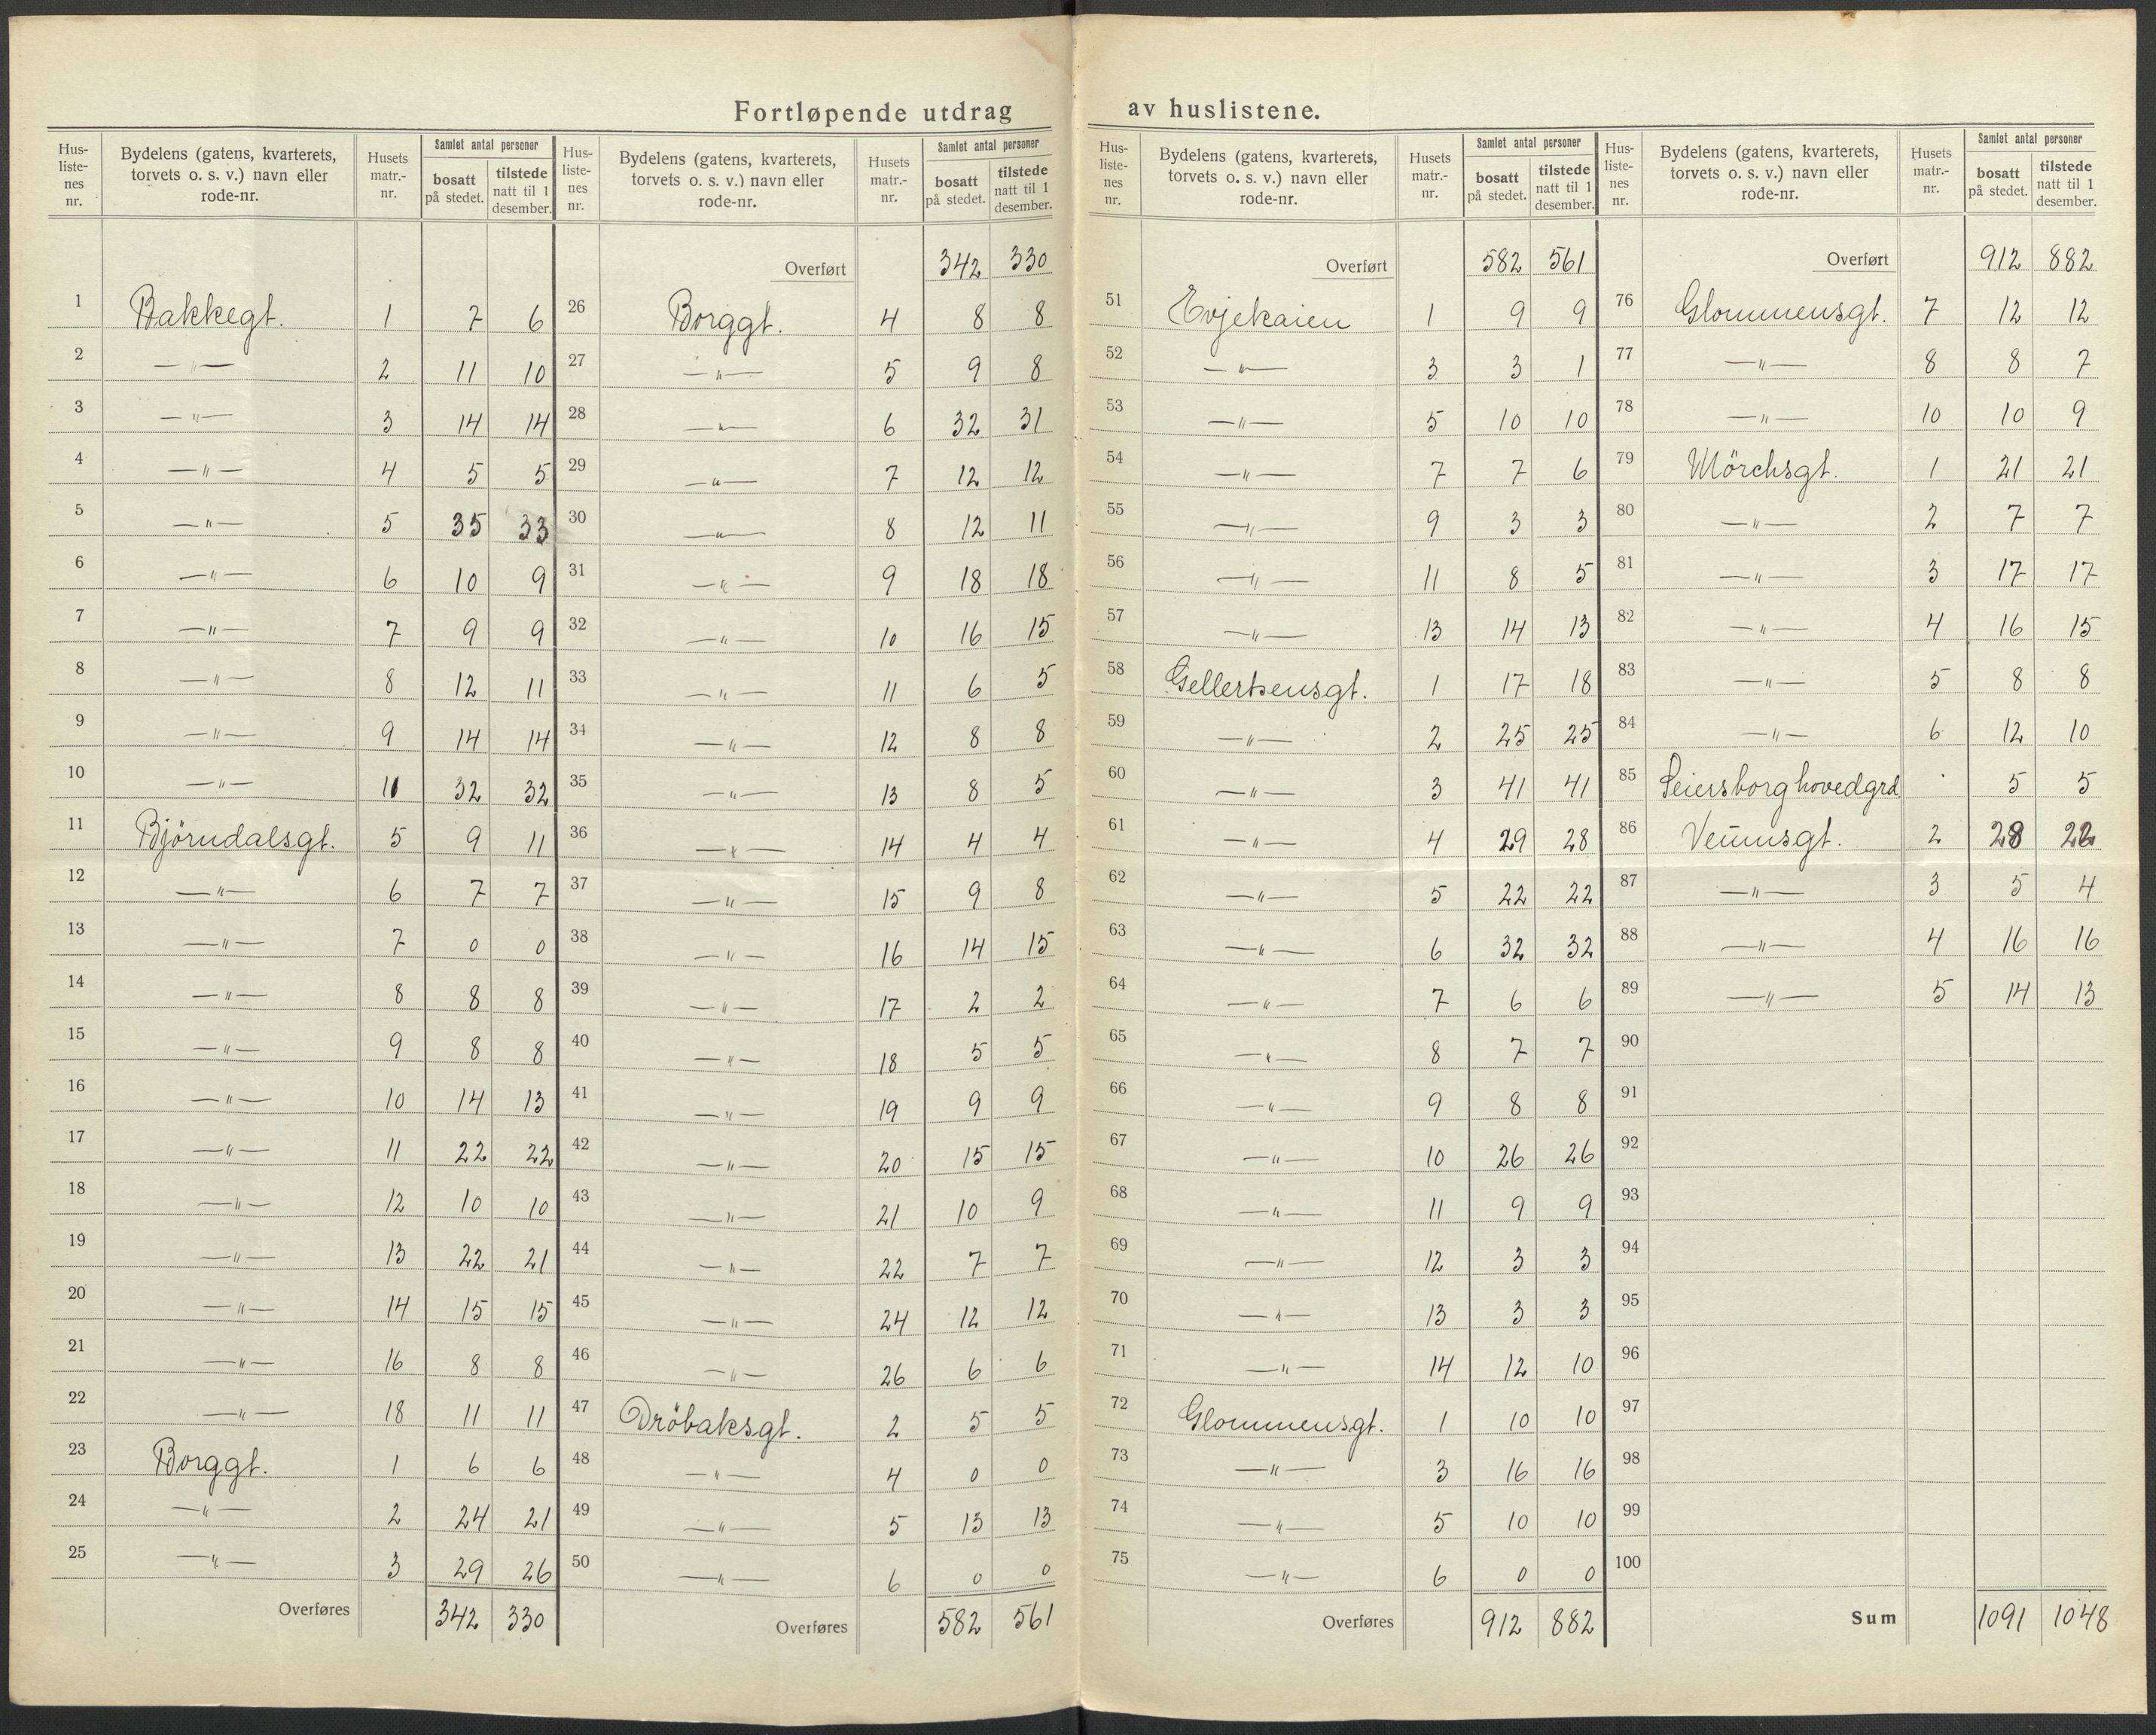 Fortløpende utdrag av huslistene.
Hus-listenes nr. | Bydelens (gatens, kvarterets, torvets o. s. v.) navn eller rode-nr. | Husets matr.-nr. | Samlet antal personer bosatt på stedet. | tilstede natt til 1 desember.
1 Bakkegt. 1 7 6
2 —"— 2 11 10
3 —"— 3 14 14
4 —"— 4 5 5
5 —"— 5 35 33
6 —"— 6 10 9
7 —"— 7 9 9
8 —"— 8 12 11
9 —"— 9 14 14
10 —"— 11 32 32
11 Björndalsgt. 5 9 11
12 —"— 6 7 7
13 —"— 7 0 0
14 —"— 8 8 8
15 —"— 9 8 8
16 —"— 10 14 13
17 —"— 11 22 22
18 —"— 12 10 10
19 —"— 13 22 21
20 —"— 14 15 15
21 —"— 16 8 8
22 —"— 18 11 11
23 Borggt. 1 6 6
24 —"— 2 24 21
25 —"— 3 29 26
Overføres 342 330
Hus-listenes nr. | Bydelens (gatens, kvarterets, torvets o. s. v.) navn eller rode-nr. | Husets matr.-nr. | Samlet antal personer bosatt på stedet. | tilstede natt til 1 desember.
Overført 342 330
26 Borggt. 4 8 8
27 —"— 5 9 8
28 —"— 6 32 31
29 —"— 7 12 12
30 —"— 8 12 11
31 —"— 9 18 18
32 —"— 10 16 15
33 —"— 11 6 5
34 —"— 12 8 8
35 —"— 13 8 5
36 —"— 14 4 4
37 —"— 15 9 8
38 —"— 16 14 15
39 —"— 17 2 2
40 —"— 18 5 5
41 —"— 19 9 9
42 —"— 20 15 15
43 —"— 21 10 9
44 —"— 22 7 7
45 —"— 24 12 12
46 —"— 26 6 6
47 Dröbaksgt. 2 5 5
48 —"— 4 0 0
49 —"— 5 13 13
50 —"— 6 0 0
Overføres 582 561
Hus-listenes nr. | Bydelens (gatens, kvarterets, torvets o. s. v.) navn eller rode-nr. | Husets matr.-nr. | Samlet antal personer bosatt på stedet. | tilstede natt til 1 desember.
Overført 582 561
51 Evjekaien 1 9 9
52 —"— 3 3 1
53 —"— 5 10 10
54 —"— 7 7 6
55 —"— 9 3 3
56 —"— 11 8 5
57 —"— 13 14 13
58 Gellertsensgt. 1 17 18
59 —"— 2 25 25
60 —"— 3 41 41
61 —"— 4 29 28
62 —"— 5 22 22
63 —"— 6 32 32
64 —"— 7 6 6
65 —"— 8 7 7
66 —"— 9 8 8
67 —"— 10 26 26
68 —"— 11 9 9
69 —"— 12 3 3
70 —"— 13 3 3
71 —"— 14 12 10
72 Glommensgt. 1 10 10
73 —"— 3 16 16
74 —"— 5 10 10
75 —"— 6 0 0
Overføres 912 882
Hus-listenes nr. | Bydelens (gatens, kvarterets, torvets o. s. v.) navn eller rode-nr. | Husets matr.-nr. | Samlet antal personer bosatt på stedet. | tilstede natt til 1 desember.
Overført 912 882
76 Glommensgt. 7 12 12
77 —"— 8 8 7
78 —"— 10 10 9
79 Mörchsgt. 1 21 21
80 —"— 2 7 7
81 —"— 3 17 17
82 —"— 4 16 15
83 —"— 5 8 8
84 —"— 6 12 10
85 Seiersborg hovedgrd 5 5
86 Veumsgt. 2 28 22
87 —"— 3 5 4
88 —"— 4 16 16
89 —"— 5 14 13
90
91
92
93
94
95
96
97
98
99
100
Sum 1091 1048